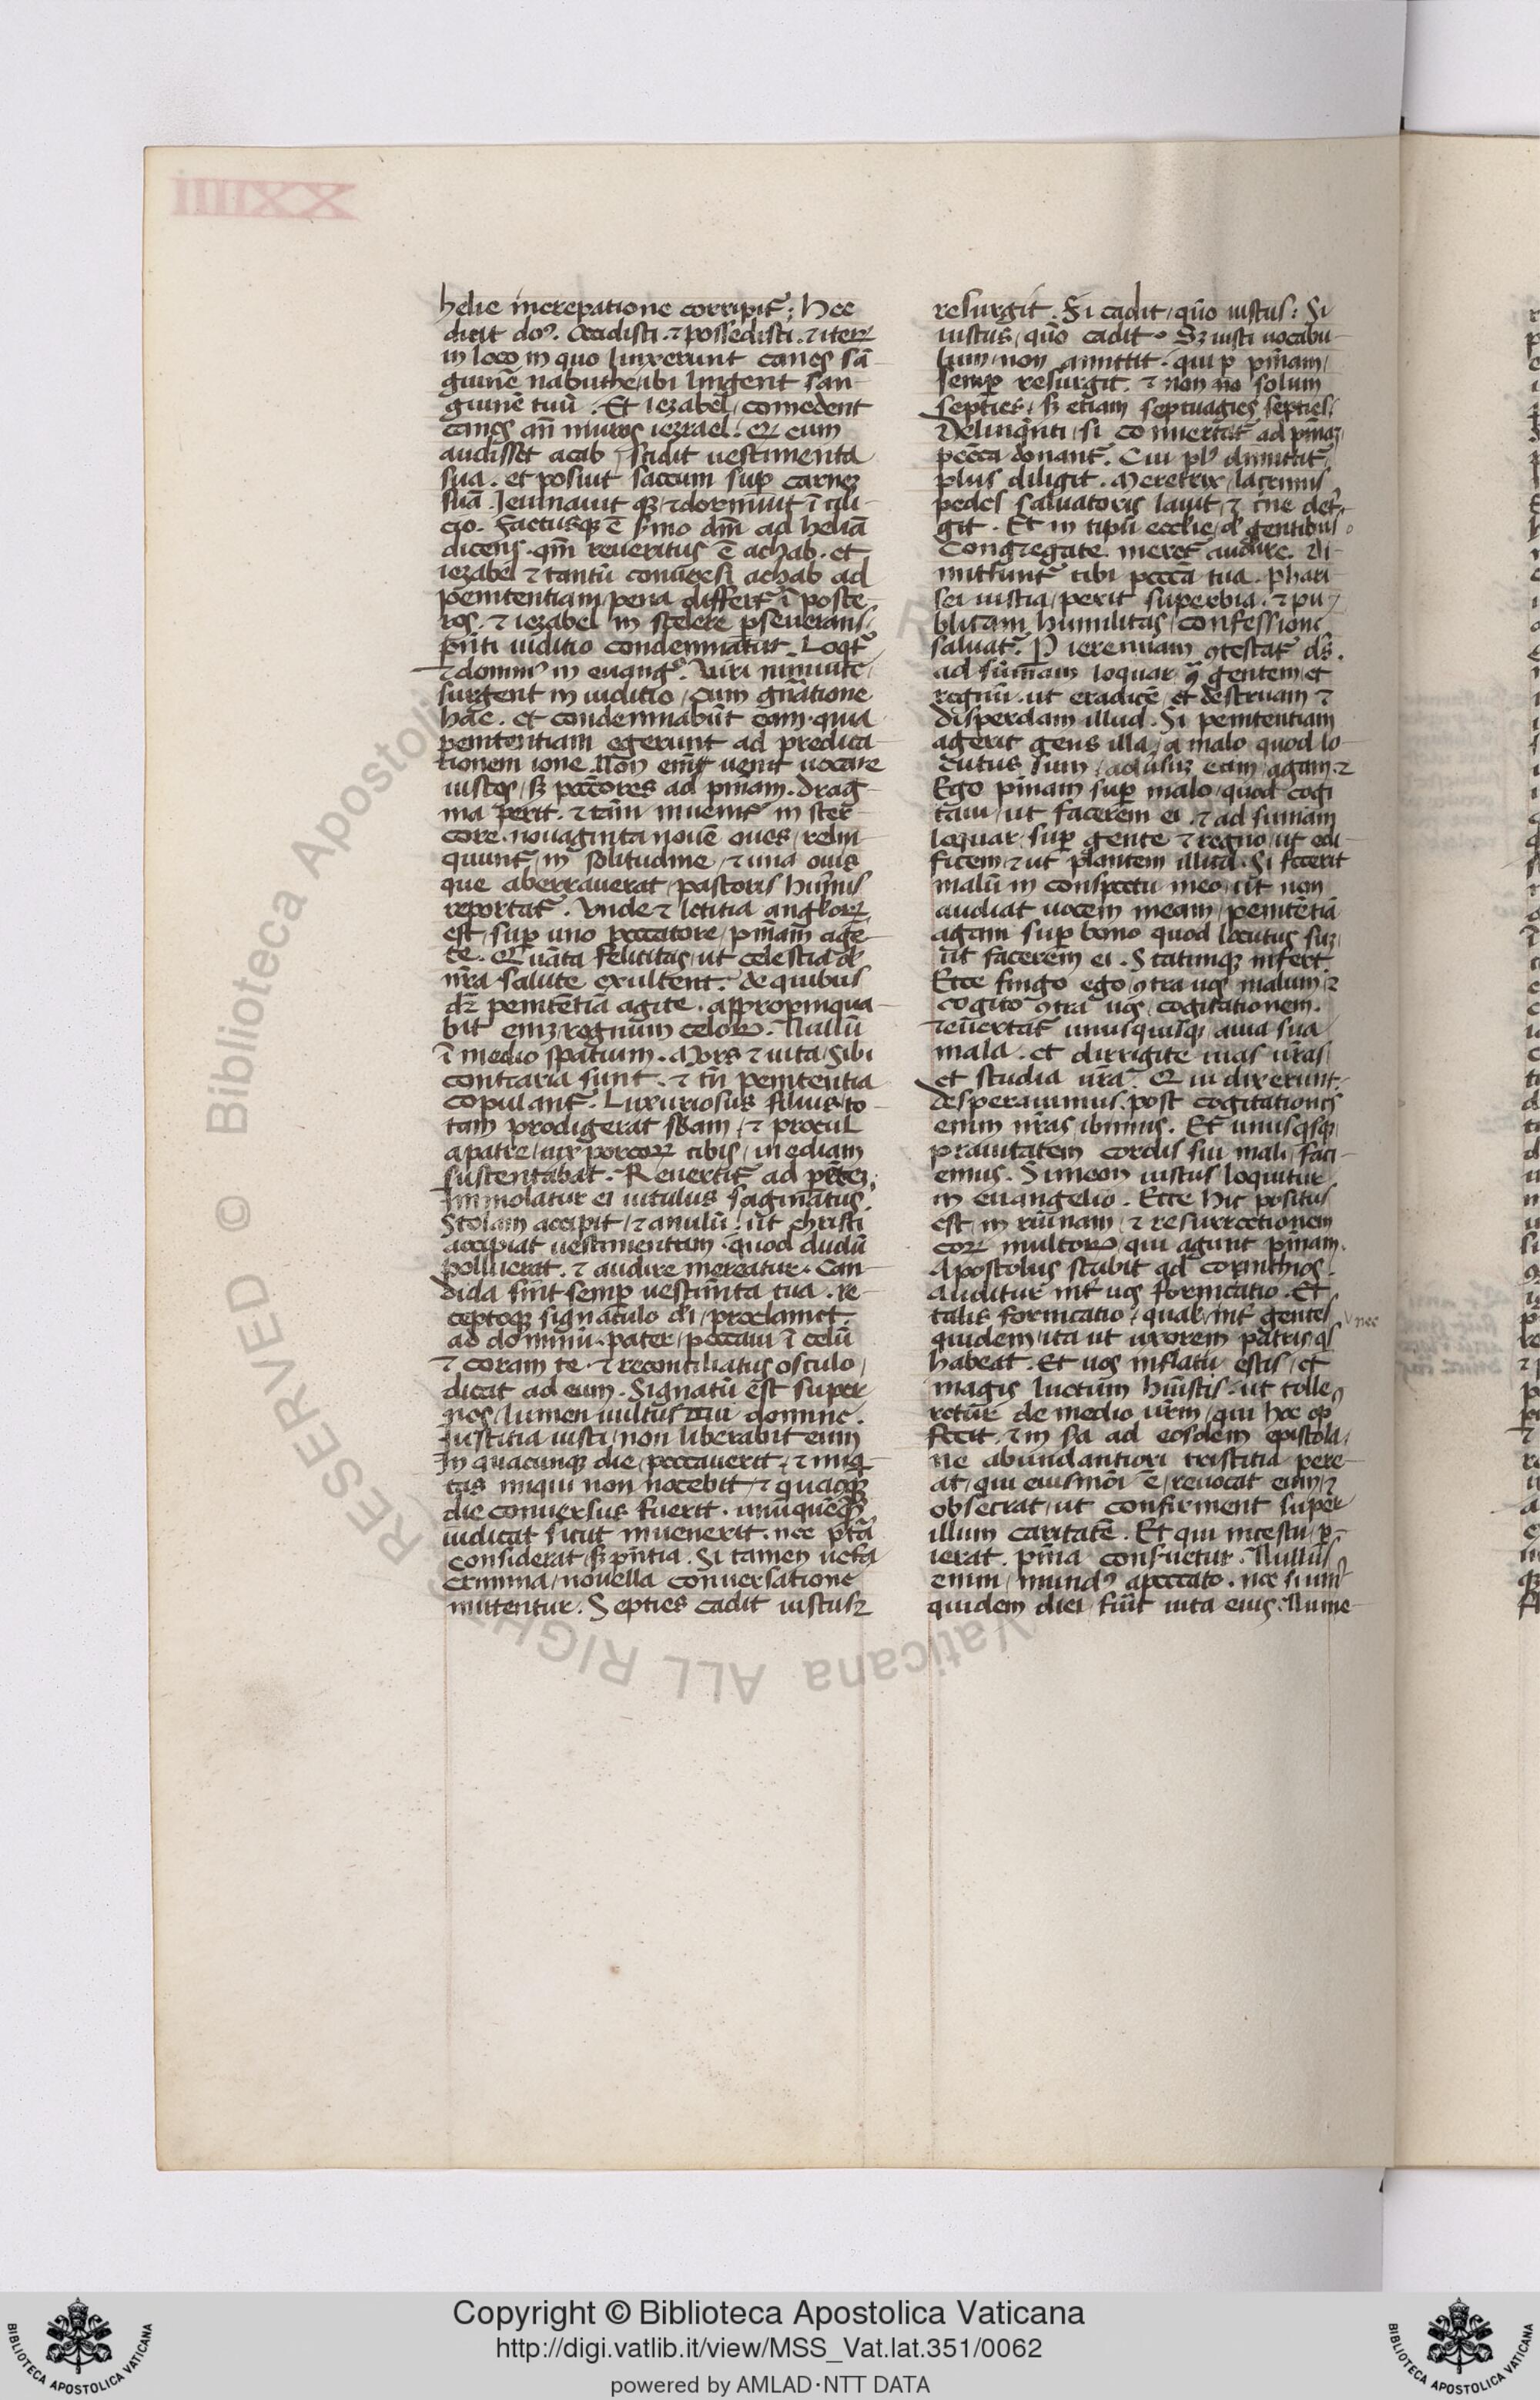 helie increpatione corripit᷑; Hec
dicit do᷒. Occidisti. ⁊ possedisti. ⁊ iteꝝ
in loco in quo linxerunt canes sā
guinē nabuthe / ibi lingent san
guinē tuū. Et iezabel / comedent
canes an̄ muros iezrael. Qꝫ cum
audisset acab / scidit uestimenta
sua. et posuit saccum suꝑ carneꝫ
suā. Ieiunauit qꝫ / ⁊ dormiuit ī cili
cio. Factusqꝫ ē sermo dn̄i ad heliā
dicens. qm̄ reueritus ē achab. et
iezabel ⁊ tantū conuersi achab ad
penitentiam / pena differt᷑ ī poste
ros. ⁊ iezabel in scelere ꝑseuerans /
pn̄ti iuditio condemnatur. Loqt᷑
⁊ domin᷒ in euang᷒. Viri niniuite /
surgent in iuditio / cum gn̄atione
hac. et condemnabūt eam. quia
penitentiam egerunt ad predica
tionem ione. Non enim uenit uocare
iustos / sꝫ pctores ad pn̄iam. Drag
ma perit. ⁊ tam̄ inuenit᷑ in ster
core. nouaginta nouē oues / relin
quunt᷑ / in solitudine / ⁊ una ouis
que aberrauerat / pastoris hum̄is
reportat᷑. Vnde ⁊ letitia angloꝝ
est / suꝑ uno peccatore / pn̄iam age
te. Quāta felicitas / ut celestia de
nr̄a salute exultent. de quibus
dꝫ penitētiā agite. appropinqua
bit enīꝫ regnum celoꝝ. Nullū
ī medio spatium. Mors ⁊ uita / sibi
contraria sunt. ⁊ tn̄ penitentia
copulant᷑. Luxuriosus filius / to
tam prodigerat sb̄am / ⁊ procul
a patre / uix porcoꝝ cibis / inediam
sustentabat. Reuertit᷑ ad pr̄eꝫ.
Immolatur ei uitulus saginatus.
Stolam accipit / ⁊ anulū. ut christi
accipiat uestimentum. quod dudū
polluerat. ⁊ audire mereatur. Can
dida sint semꝑ uestim̄ta tua. re
ceptoqꝫ signaculo dei / proclamet
ad dominū. pater / peccaui ī celū
⁊ coram te. ⁊ reconciliatus osculo /
dicat ad eum. Signatū est super
nos / lumen uultus tui domine.
Iustitia iusti / non liberabit eum
In quacunqꝫ die / peccauerit. ⁊ iniq
tas iniqui non nocebit / ⁊ quacqꝫ
die conuersus fuerit. unūquēqꝫ
iudicat sicut inuenerit. nec pt̄ā
considerat / sꝫ pn̄tia. Si tamen ueta
crimina / nouella conuersatione
mutentur. Septies cadit iustus ⁊
resurgit. Si cadit / quō iustus: Si
iustus / quō cadit. Sꝫ iusti uocabu
lum / non amittit. qui ꝑ pn̄iam /
semꝑ resurgit. ⁊ non no solum
septies / sꝫ etiam septuagies septies.
Delinqn̄ti / si conuertat᷑ ad pn̄iaꝫ
peccā donant᷑. Cui pl᷒ dimittit᷑
plus diligit. Meretrix / lacrimis
pedes saluatoris lauit / ⁊ crine deter
git. Et in tipū ecclie / de gentibus
Congregate. meret᷑ audire. Di
mittunt᷑ tibi peccā tua. Phari
sei iustia / perit superbia. ⁊ pu
blicam humilitas / confessione
saluat᷑. Ꝑ ieremiam ꝯtestat᷑ ds̄.
ad sūmam loquar ꝯ̄ gentem / et
regnū. ut eradicē / et destruam ⁊
disperdam illud. Si penitentiam
agerit gens illa / a malo quod lo
cutus sum / aduīsuꝫ eam / agam. ⁊
Ego pn̄iam suꝑ malo / quod cogi
taui / ut facerem ei. ⁊ ad sūmam
loquar / suꝑ gente ⁊ regno / ut edi
ficem / ⁊ ut plantem illud. Si fecerit
malū in conspectu meo / ut non
audiat uocem meam / penitētiā
agam suꝑ bono quod locutus suꝫ
ut facerem ei. Statimqꝫ infert.
Ecce fingo ego / ꝯtra uos malum. ⁊
cogito ꝯtra uos / cogitationem.
reūertat᷑ unusquisqꝫ / a uia sua
mala. et dirrigite uias ur̄as
et studia ur̄a. Qui dixerunt.
desperauimus. post cogitationes
enim nr̄as ibimus. Et unusqsqꝫ
prauitatem cordis sui mali / faci
emus. Simeon iustus loquitur
in euangelio. Ecce hic positus
est / in ruinam / ⁊ resurrectionem
coꝝ multoꝝ / qui agunt pn̄iam.
Apostolus scribit ad corinthios.
Auditur int᷑ uos fornicatio. Et
talis fornicatio / qualis int᷑ gentes nec
quidem / ita ut uxorem patris qs
habeat. Et uos inflati estis / et
magis luctum hūistis. ut tolle
retur de medio ur̄m / qui hoc op᷒
fecit. ⁊ in sa ad eosdem epistola /
ne abundantiori tristitia pere
at / qui eiusmōi ē / reuocat eum / ⁊
obsecrat / ut confirment super
illum caritatē. Et qui incestu / ꝑ
ierat. pn̄ia consuetur. Nullus
enim / mund᷒ a peccato. nec si uni᷒
quidem diei / fūit uita eius. Nume
Copyright © Biblioteca Apostolica Vaticana
http://digi.vatlib.it/view/MSS_Vat.lat.351/0062
powered by AMLAD·NTT DATA